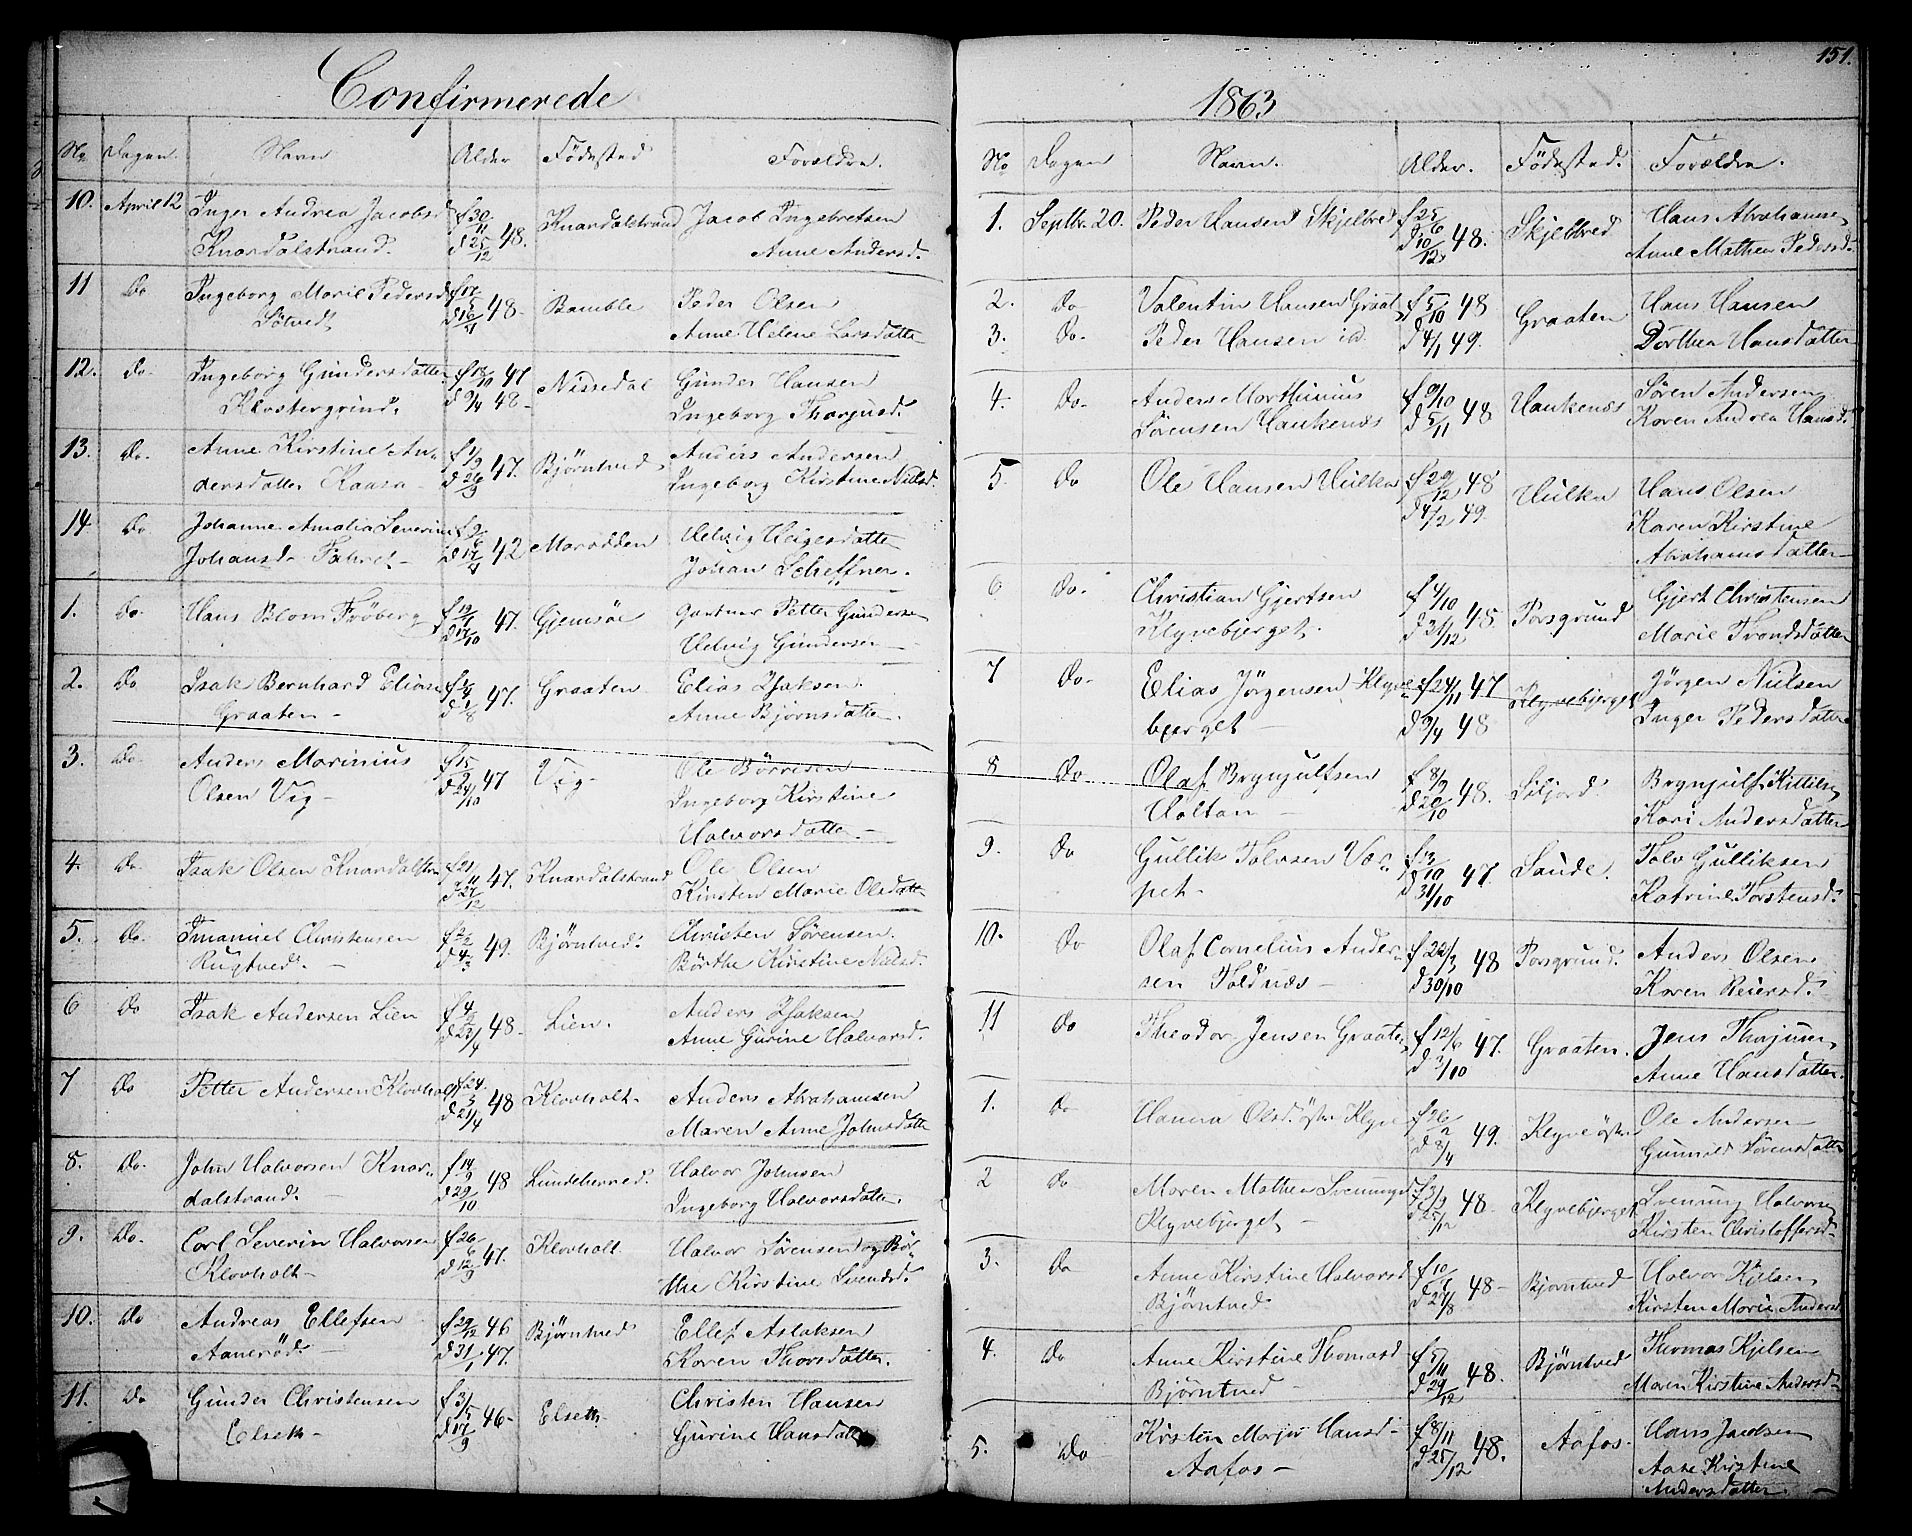 Confirmerede
No Dagen. Navn Alder Födested Forældre.
10. April 12 Inger Andrea Jacobsd f 30/11 48. Knardalstrand Jacob Ingebretsen
Knardalstrand. d 25/12 Anne Andersd.
11 Do Ingeborg Marie Pedersd 48- Bamble Peder Olsen
Anne Helene Larsdatter
12. Do. Ingeborg Gundersdatter 47 Nissedal Gunder Hansen
Klostergrind. d 9/4 48- Ingeborg Thorjusd.
13. Do. Anne Kirstine An- 47. Bjørntved Anders Andersen
dersdatter Kaasa - Ingeborg Kirstine Nielsd.
14 Do Johanne Amalia Severine 42 Helvig Helgesdatter
Johansd. Johan Scheffner.
1. Do. Hans Blom Fröberg 47. Gjemsöe gartner Petter Gundersen
Helvig Gundersen -
2. Do Isak Bernhard Eliasen 47. Graaten Elias Isaksen
Graaten - Anne Bjørnsdatter.
3. Do. Anders Marinius 47 Vig- Ole Börresen
Olsen Vig - d 24/10 Ingeborg Kirstine
Halvorsdatter. -
4. Do Isak Olsen Knardalstr f 21/11 47. Knardalstrand Ole Olsen
d 27/12 Kirsten Marie Olsdatt
5. Do. Imanuel Christensen f 2/2 49. Bjørntved. Christen Sörensen.
Rugtved. - d 4/3 Börthe Kirstine Nielsd
6 Do Isak Andersen Lien 48- Lien. Anders Isaksen
d 23/4 Anne Gurine Halvorsd.
7 Do Petter Andersen Klovholt f 24/3 48 Klovholt - Anders Abrahamsen
d 21/4 Maren Anne Johnsdatte
8. Do. John Halvorsen Knar- f 14/9 48 Lundeherred. Halvor Johnsen
dalstrand. - d 29/10 Ingeborg Halvorsdatter.
9. Do. Carl Severin Halvorsen f 26/6 47. Klovholt Halvor Sörensen og Bör-
Klovholt - d 12/9 the Kirstine Svendsd.
10. Do Andreas Ellefsen f 29/12 46 Bjørntved Ellef Aslaksen
Aaneröd. - d 31/1 47. Karen Thorsdatter.
11. Do Gunder Christensen f 3/5 46- Elseth- Christen Hansen
Elseth - d 17/9 Gurine Hansdatter
1863
151.
No Dagen Navn. Alder. Födested. Forældre.
1. Septbr. 20. Peder Hansen Skjelbred f 25/6 48. Skjelbred Hans Abrahamsen
d 10/12 Anne Mathea Pedersd.
2. Do Valentin Hansen Graat f 5/10 48 Graaten Hans Hansen
3. Do. Peder Hansen id. d 4/1 49. Dorthea Hansdatter
4. Do. Anders Marthinius f 9/10 48 Haukenæs Sören Andersen
Sörensen Haukenæs d 5/11 Karen Andrea Hansd.
5 Do Ole Hansen Hulka f 20/12 48 Hulka Hans Olsen
d 4/2 49. Karen Kirstine
Abrahamsdatter
6 Do. Christian Gjertsen f 4/10 48 Porsgrund Gjert Christensen
Klyvebjerget. d 31/12 Marie Trondsdatter
7 Do. Elias Jörgensen Klyve- f 24/11 47 Klyvebjerget Jörgen Nielsen
bjerget - d 3/4 48 Inger Pedersdatter
8 Do. Olaf Brynjulfsen f 8/9 48. Siljord. Brynjulf Kittilsen
Holtan - d 20/10 Kari Andersdatter
9. Do Gullik Tolvsen Va- f 13/10 47. Saude. Tolv Gulliksen
pet - d 31/10 Katrine Torstensd.
10. Do Olaf Cornelius Ander- f 22/3 48 Porsgrund. Anders Olsen
sen Toldnæs - d 30/10 Karen Reiersd.
11 Do Theodor Jensen Graaten f 12/6 47. Graaten. Jens Thorjusen
Anne Hansdatter.
1. Do Hanna Olsd. östre Klyve f 26/2 49. Klyve östre Ole Andersen
d 8/4 Gunnild Sörensdatter
2 Do Maren Mathea Svenningsd 48. Klyvebjerget Svenning Halvorsen
Klyvebjerget - Kirsten Christoffersd.
3. Do Anne Kirstine Halvorsd 48- Bjørntved Halvor Kjelsen
Bjørntved Kirsten Marie Andersd
4. Do Anne Kirstine Thomasd f 5/11 48. Bjørntved Thomas Kjelsen
Bjørntved - d 29/12 Maren Kirstine Andersd.
5. Do Kirsten Marje Hansd - f 8/11 48. Aafos- Hans Jacobsen
Aafos - d 25/12 Aase Kirstine
Andersdatter.